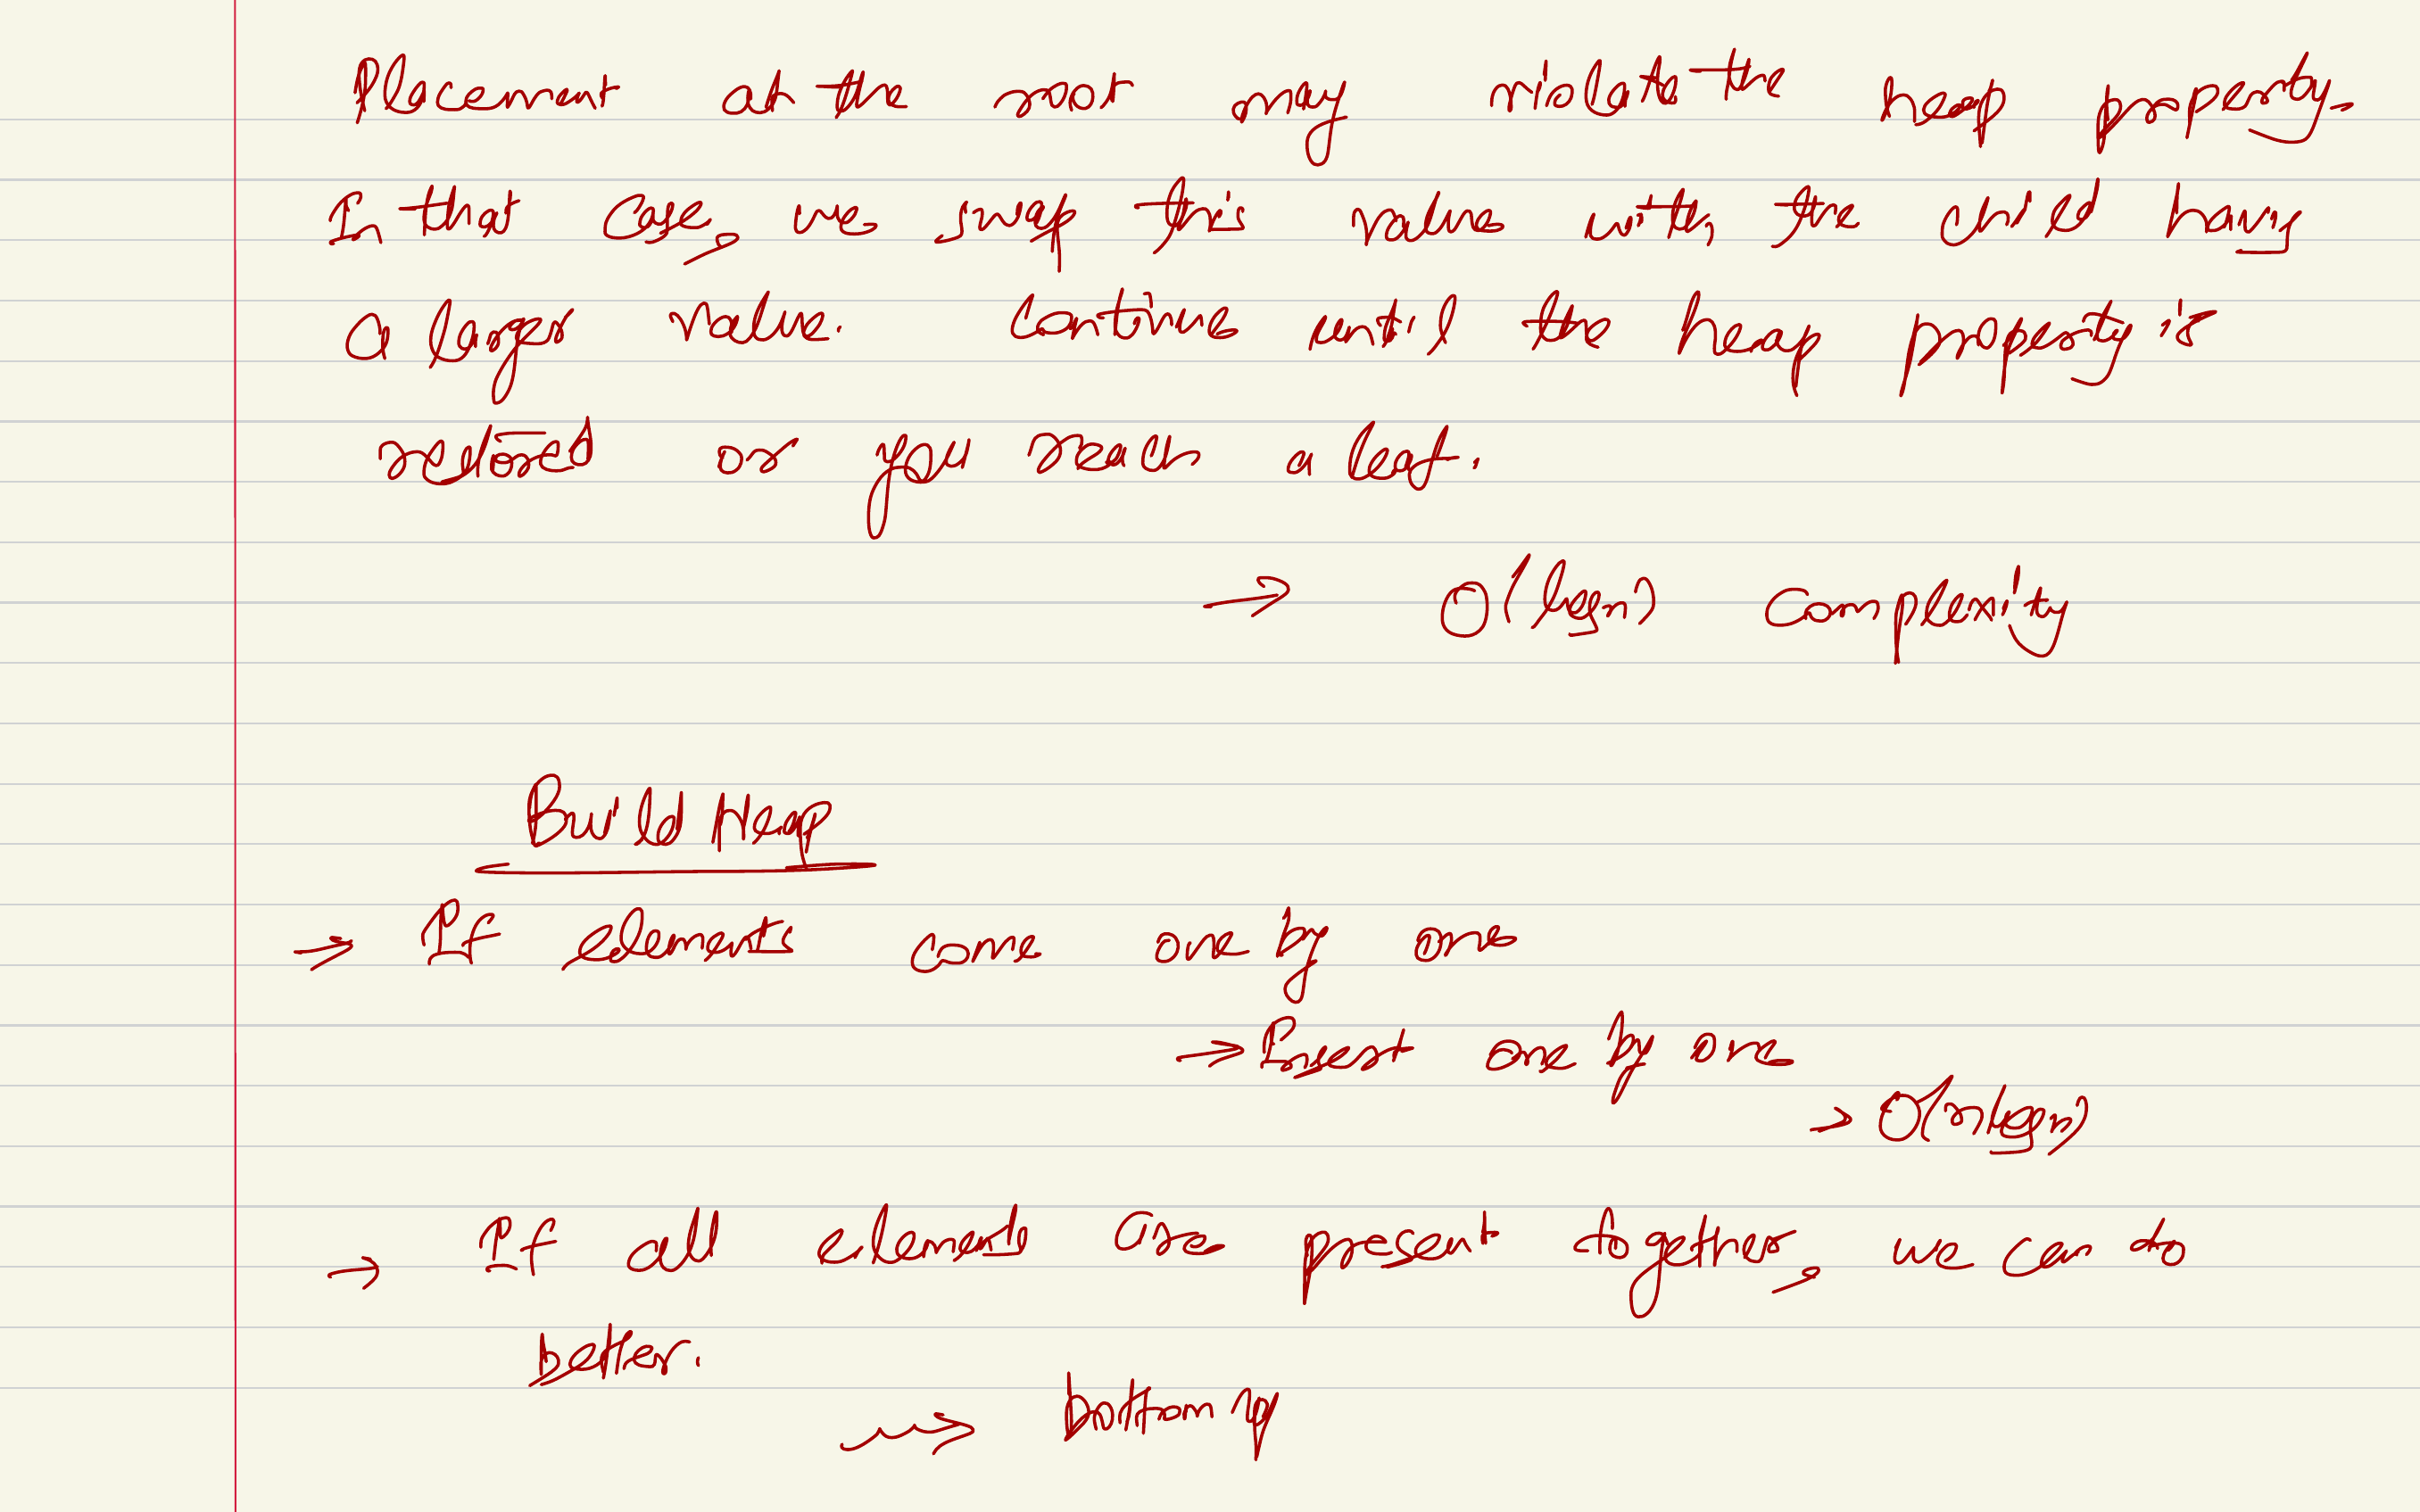 Placement at the root may violate the heap property.
In that case, we swap this value with the child having
a larger value. Continue until the heap property is
restored or you reach a leaf.
→ O(log n) complexity
Build Heap
→ If elements come one by one
→ Insert one by one
→ O(n log n)
→ If all elements are present together, we can do
better.
→ bottom up